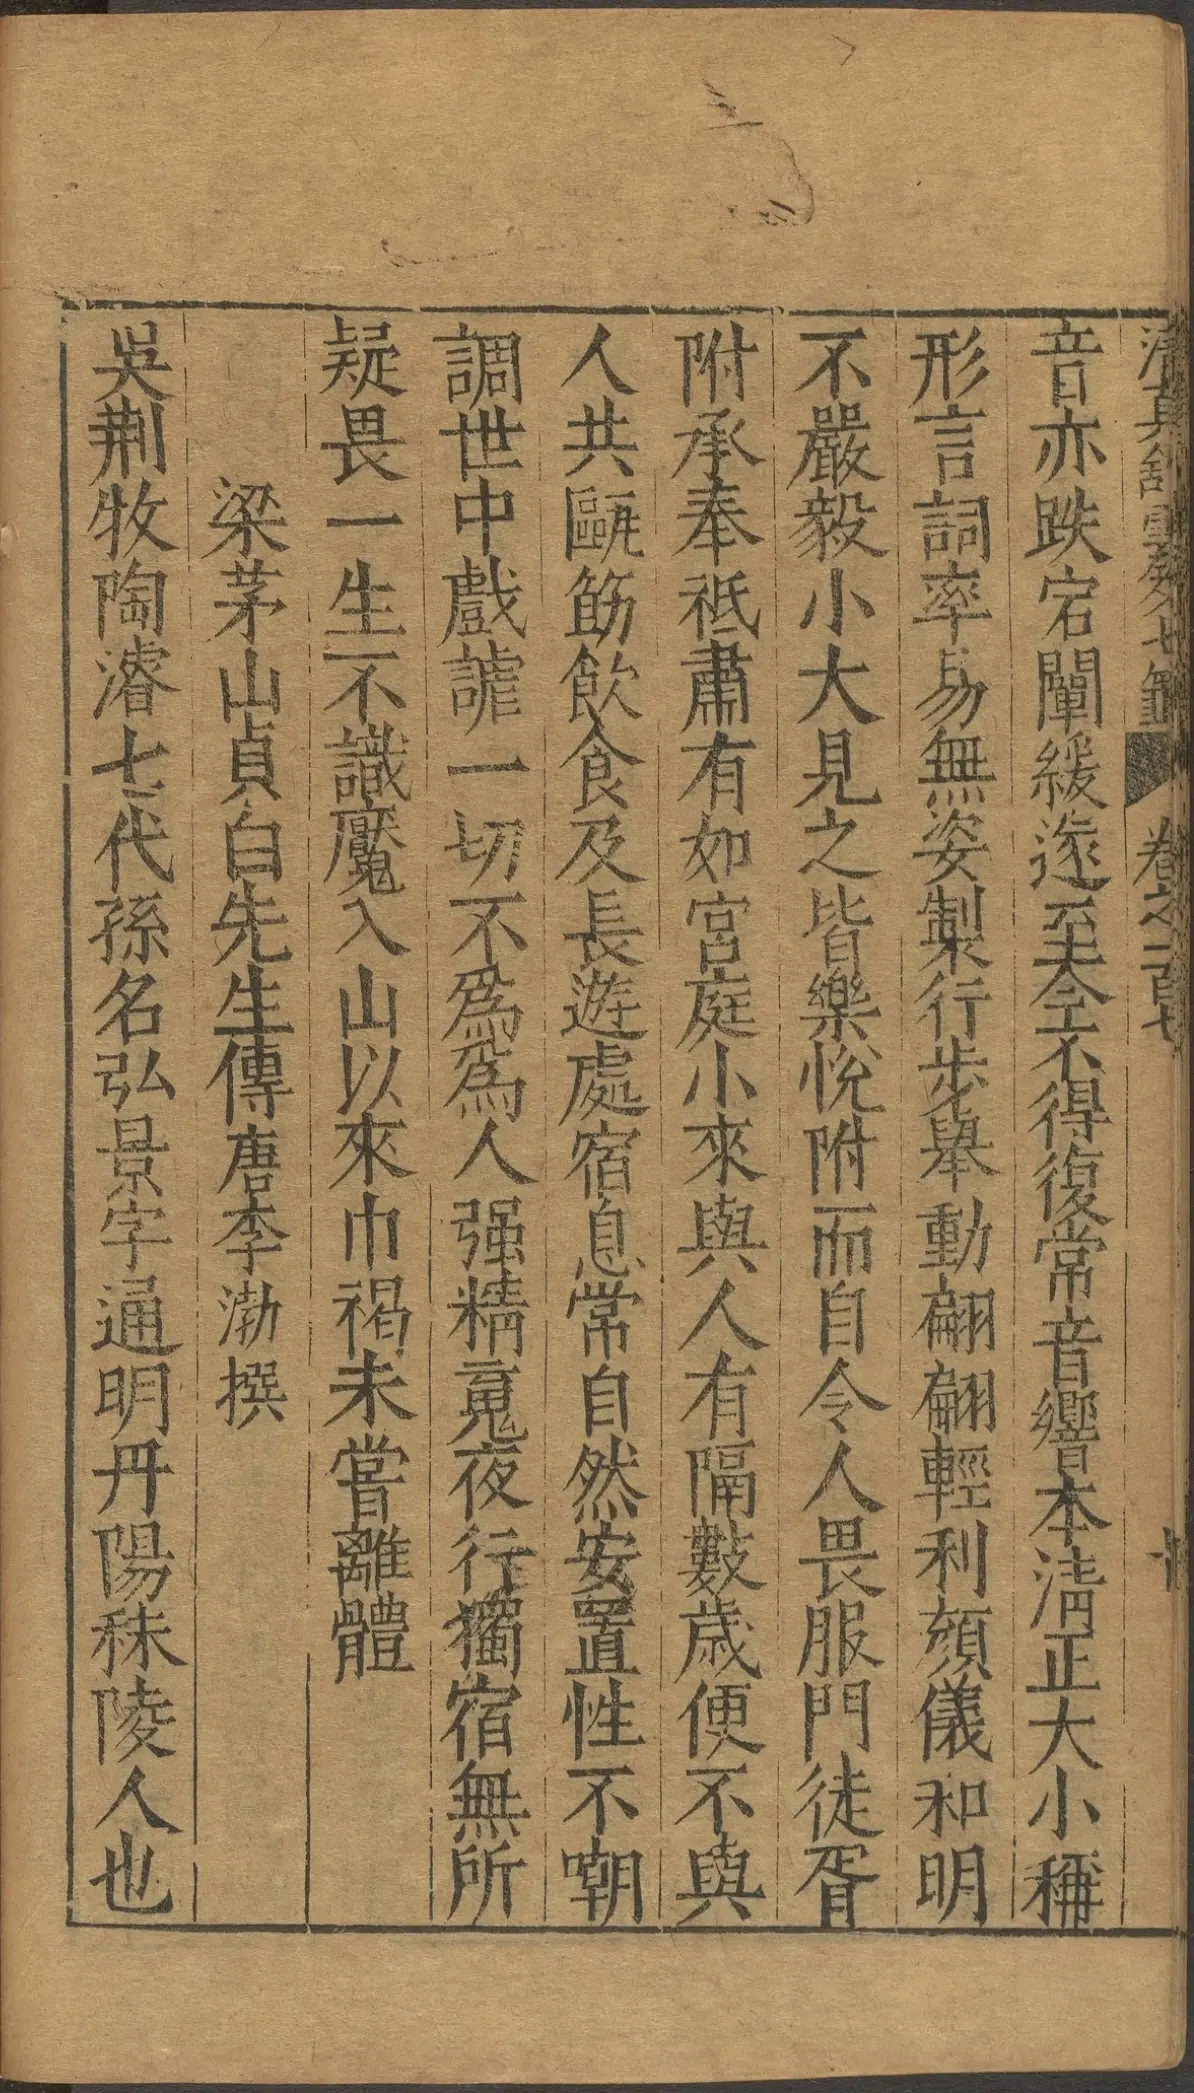 卷之一百七
音亦跌宕闡緩遂至今不得復常音響本清正大小稱
形言詞率易無姿製行步舉動翩翩輕利顏儀和明
不嚴毅小大見之皆樂悅附而自令人畏服門徒胥
附承奉祗肅有如宮庭小來與人有隔數歲便不與
人共甌筯飲食及長遊處宿息常自然安置性不嘲
調世中戲謔一切不爲爲人强精䰟夜行獨宿無所
疑畏一生不識魘入山以來巾褐未嘗離體
梁茅山貞白先生傳唐李渤撰
吳荆牧陶濬七代孫名弘景字通明丹陽秣陵人也